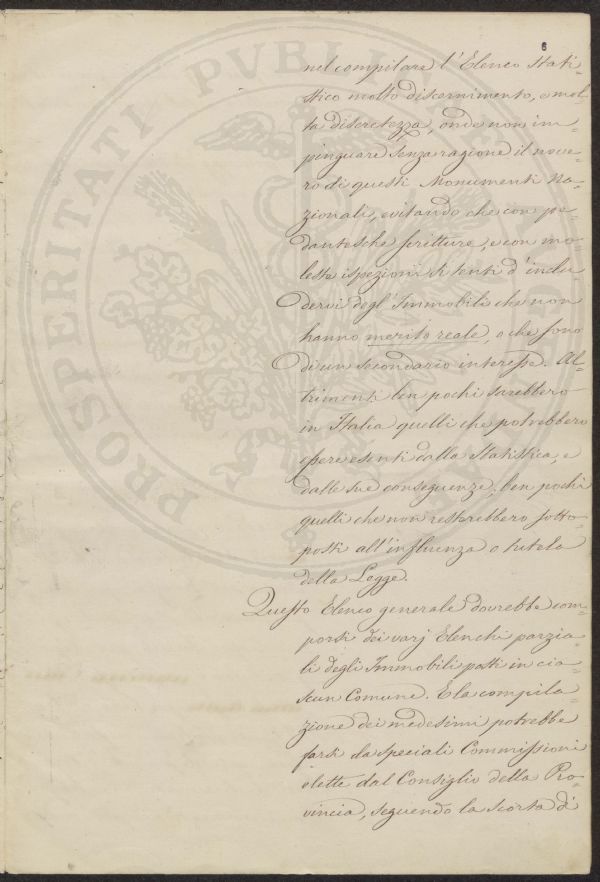 6
nel compilare l'Elenco Stati-
stico molto discernimento, e mol-
ta discretezza, onde non im-
pinguare senza ragione il nove-
ro di questi Monumenti Na-
zionali, evitando che con pe-
dantesche scritture, e con mo-
leste ispezioni si tenti d'inclu-
dervi degl'Immobili che non
hanno merito reale, o che sono
di un secondario interesse. Al-
trimenti ben pochi sarebbero
in Italia quelli che potrebbero
essere esenti dalla Statistica, e
dalle sue conseguenze, ben pochi
quelli che non resterebbero sotto-
posti all'influenza o tutela
della Legge.
Questo Elenco generale dovrebbe com-
porsi dei varj Elenchi parzia-
li degli Immobili posti in cia-
scun Comune. E la compila-
zione dei medesimi potrebbe
farsi da speciali Commissioni
elette dal Consiglio della Pro-
vincia, seguendo la scorta di
PROSPERITATI PVBLI